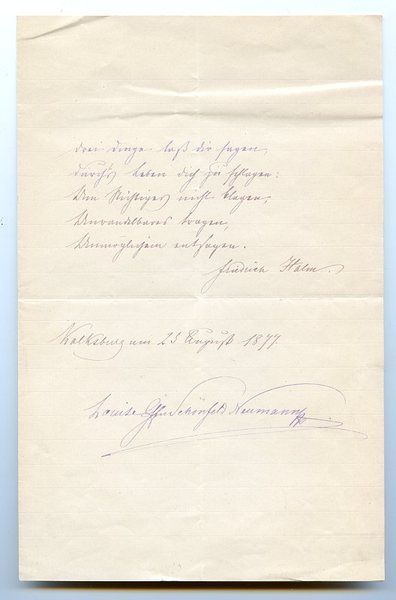 Drei Dinge laß dir sagen,
Durch's Leben dich zu schlagen:
Um Nichtiges nicht klagen,
Unwandelbares tragen,
Unmöglichem entsagen.
Friedrich Halm.
Kalksburg am 25 August 1877.
Louise Gfin Schönfeld Neumann